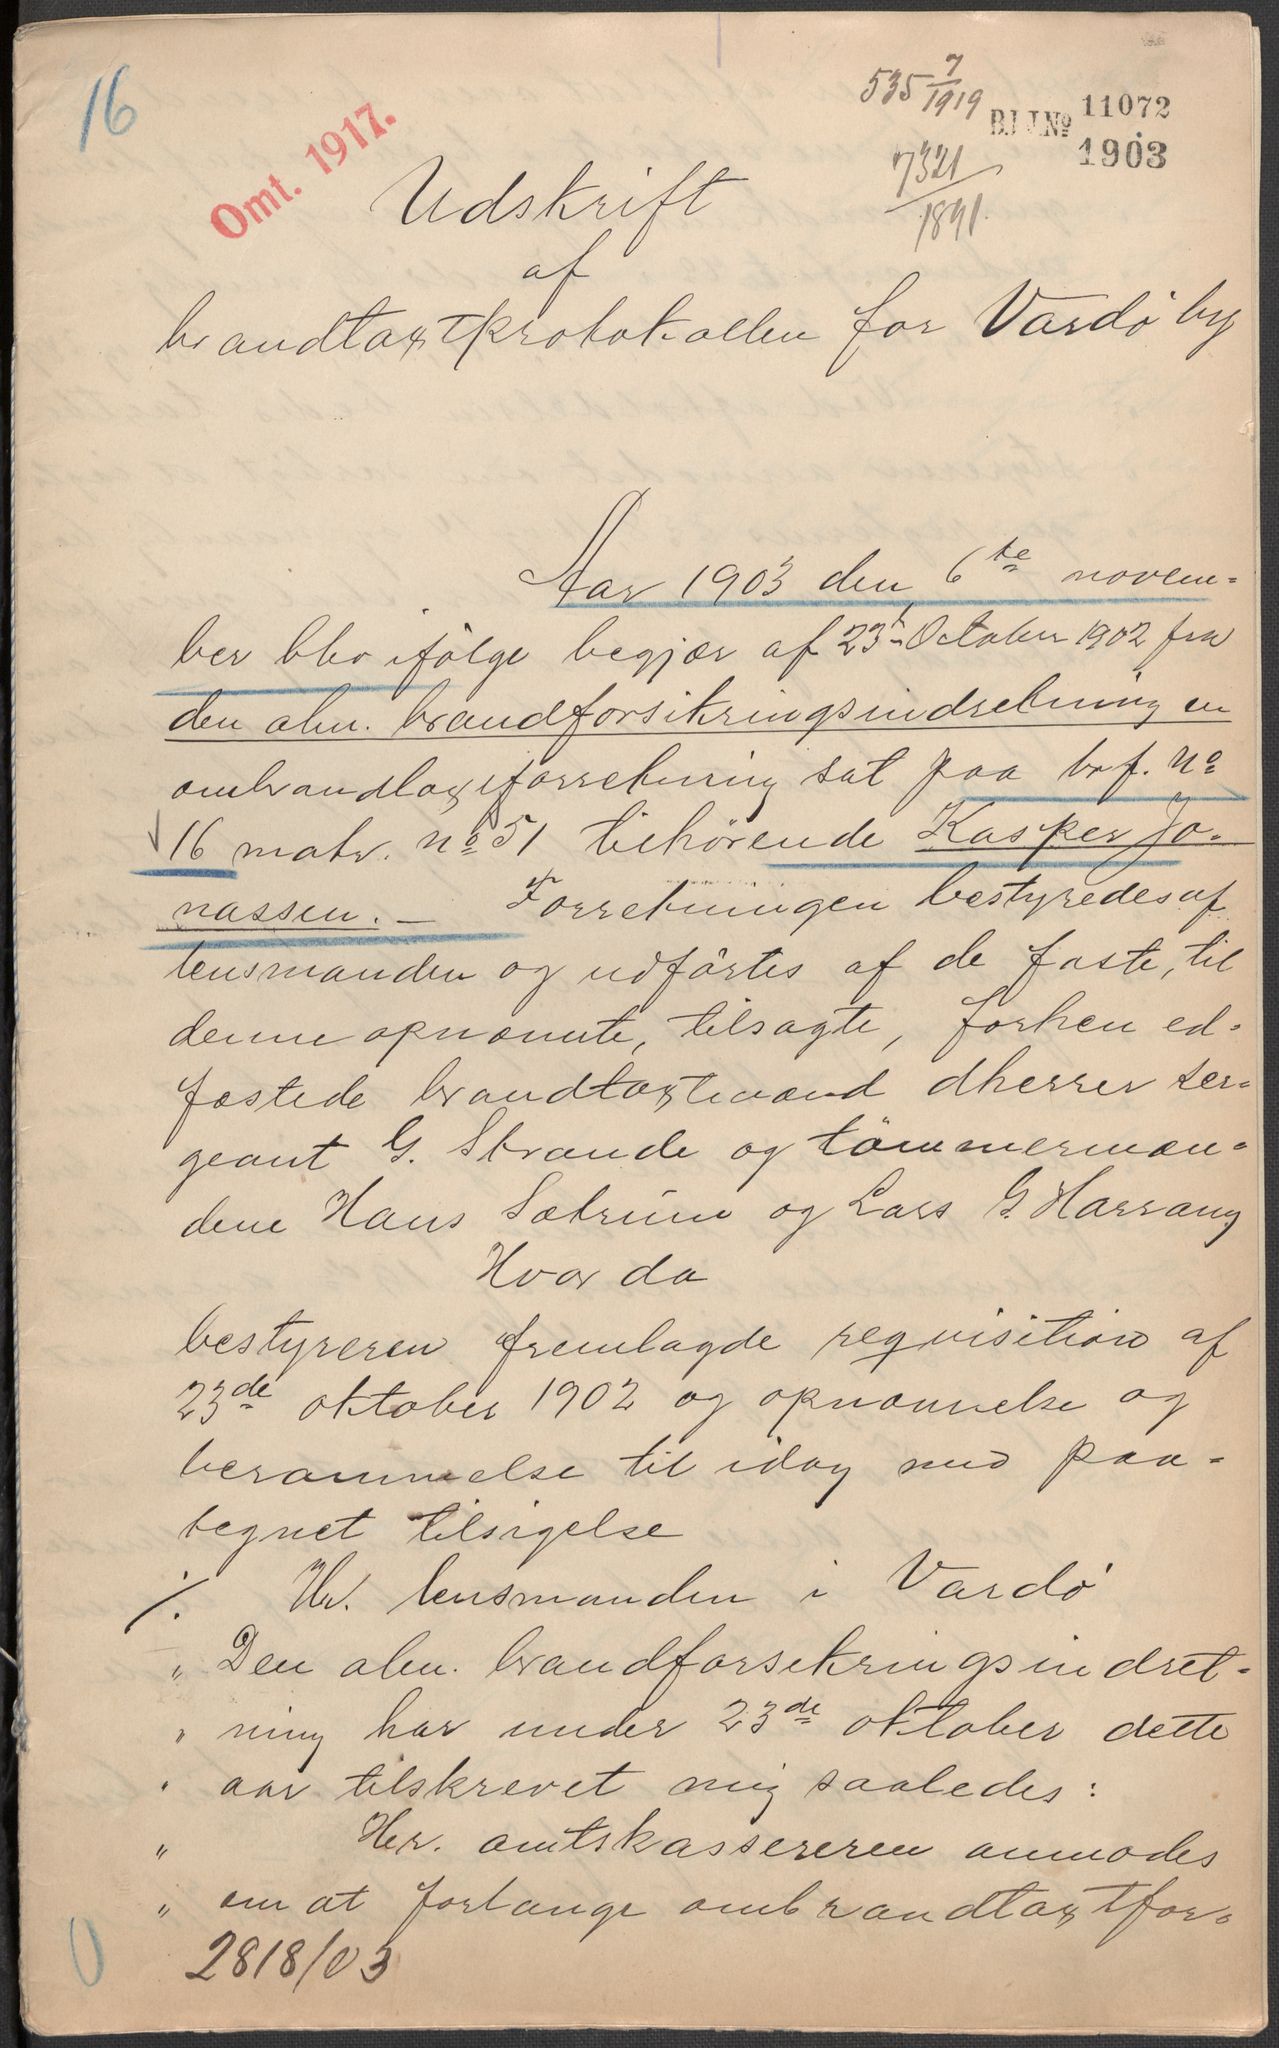 16
Omt. 1917.
535 7/1919
B.I J.No 11072
1903
7321/1891.
Udskrift
af
brandtaxtprotokollen for Vardö by
Aar 1903 den 6te novem-
ber blev ifölge begjær af 23de October 1902 fra
den alm. brandforsikringsindretning en
ombrandtaxtforretning sat paa br.f. No
16 matr. No 51 tilhörende Kasper Jo-
nassen. — Forretningen bestyredes af
lensmanden og udförtes af de faste, til
denne opnævnte, tilsagte, forhen ed-
fæstede brandtaxtmænd dherrer ser-
geant G. Strande og tömmermæn-
dene Hans Sætrum og Lars G. Harrang
Hvor da
bestyreren fremlagde requisition af
23de oktober 1902 og opnævnelse og
berammelse til idag med paa-
tegnet tilsigelse
./. Hr. lensmanden i Vardö
" Den alm. brandforsikringsindret-
" ning har under 23de oktober dette
" aar tilskrevet mig saaledes:
" Hr. amtskassereren anmodes
" om at forlange ombrandtaxtfor-
2818/03
0